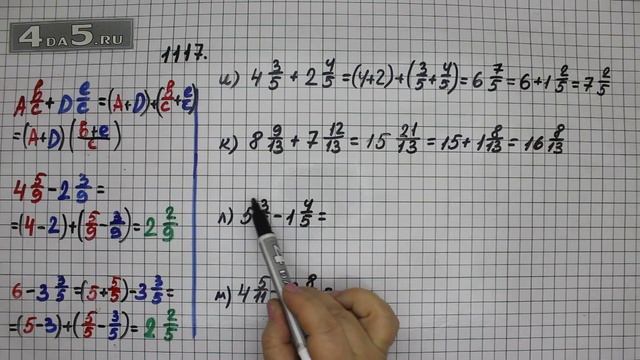 4DA5.RU
1117.
A b/c + D e/c = (A+D)+(b/c + e/c)
= (A+D) (b+e/c)
4 5/9 - 2 3/9 =
= (4-2)+(5/9 - 3/9) = 2 2/9
6 - 3 3/5 = (5+5/5) - 3 3/5 =
= (5-3)+(5/5 - 3/5) = 2 2/5
и) 4 3/5 + 2 4/5 = (4+2)+(3/5 + 4/5) = 6 7/5 = 6+1 2/5 = 7 2/5
к) 8 9/13 + 7 12/13 = 15 21/13 = 15+1 8/13 = 16 8/13
л) 5 3/ - 1 4/5 =
м) 4 5/11 - 8